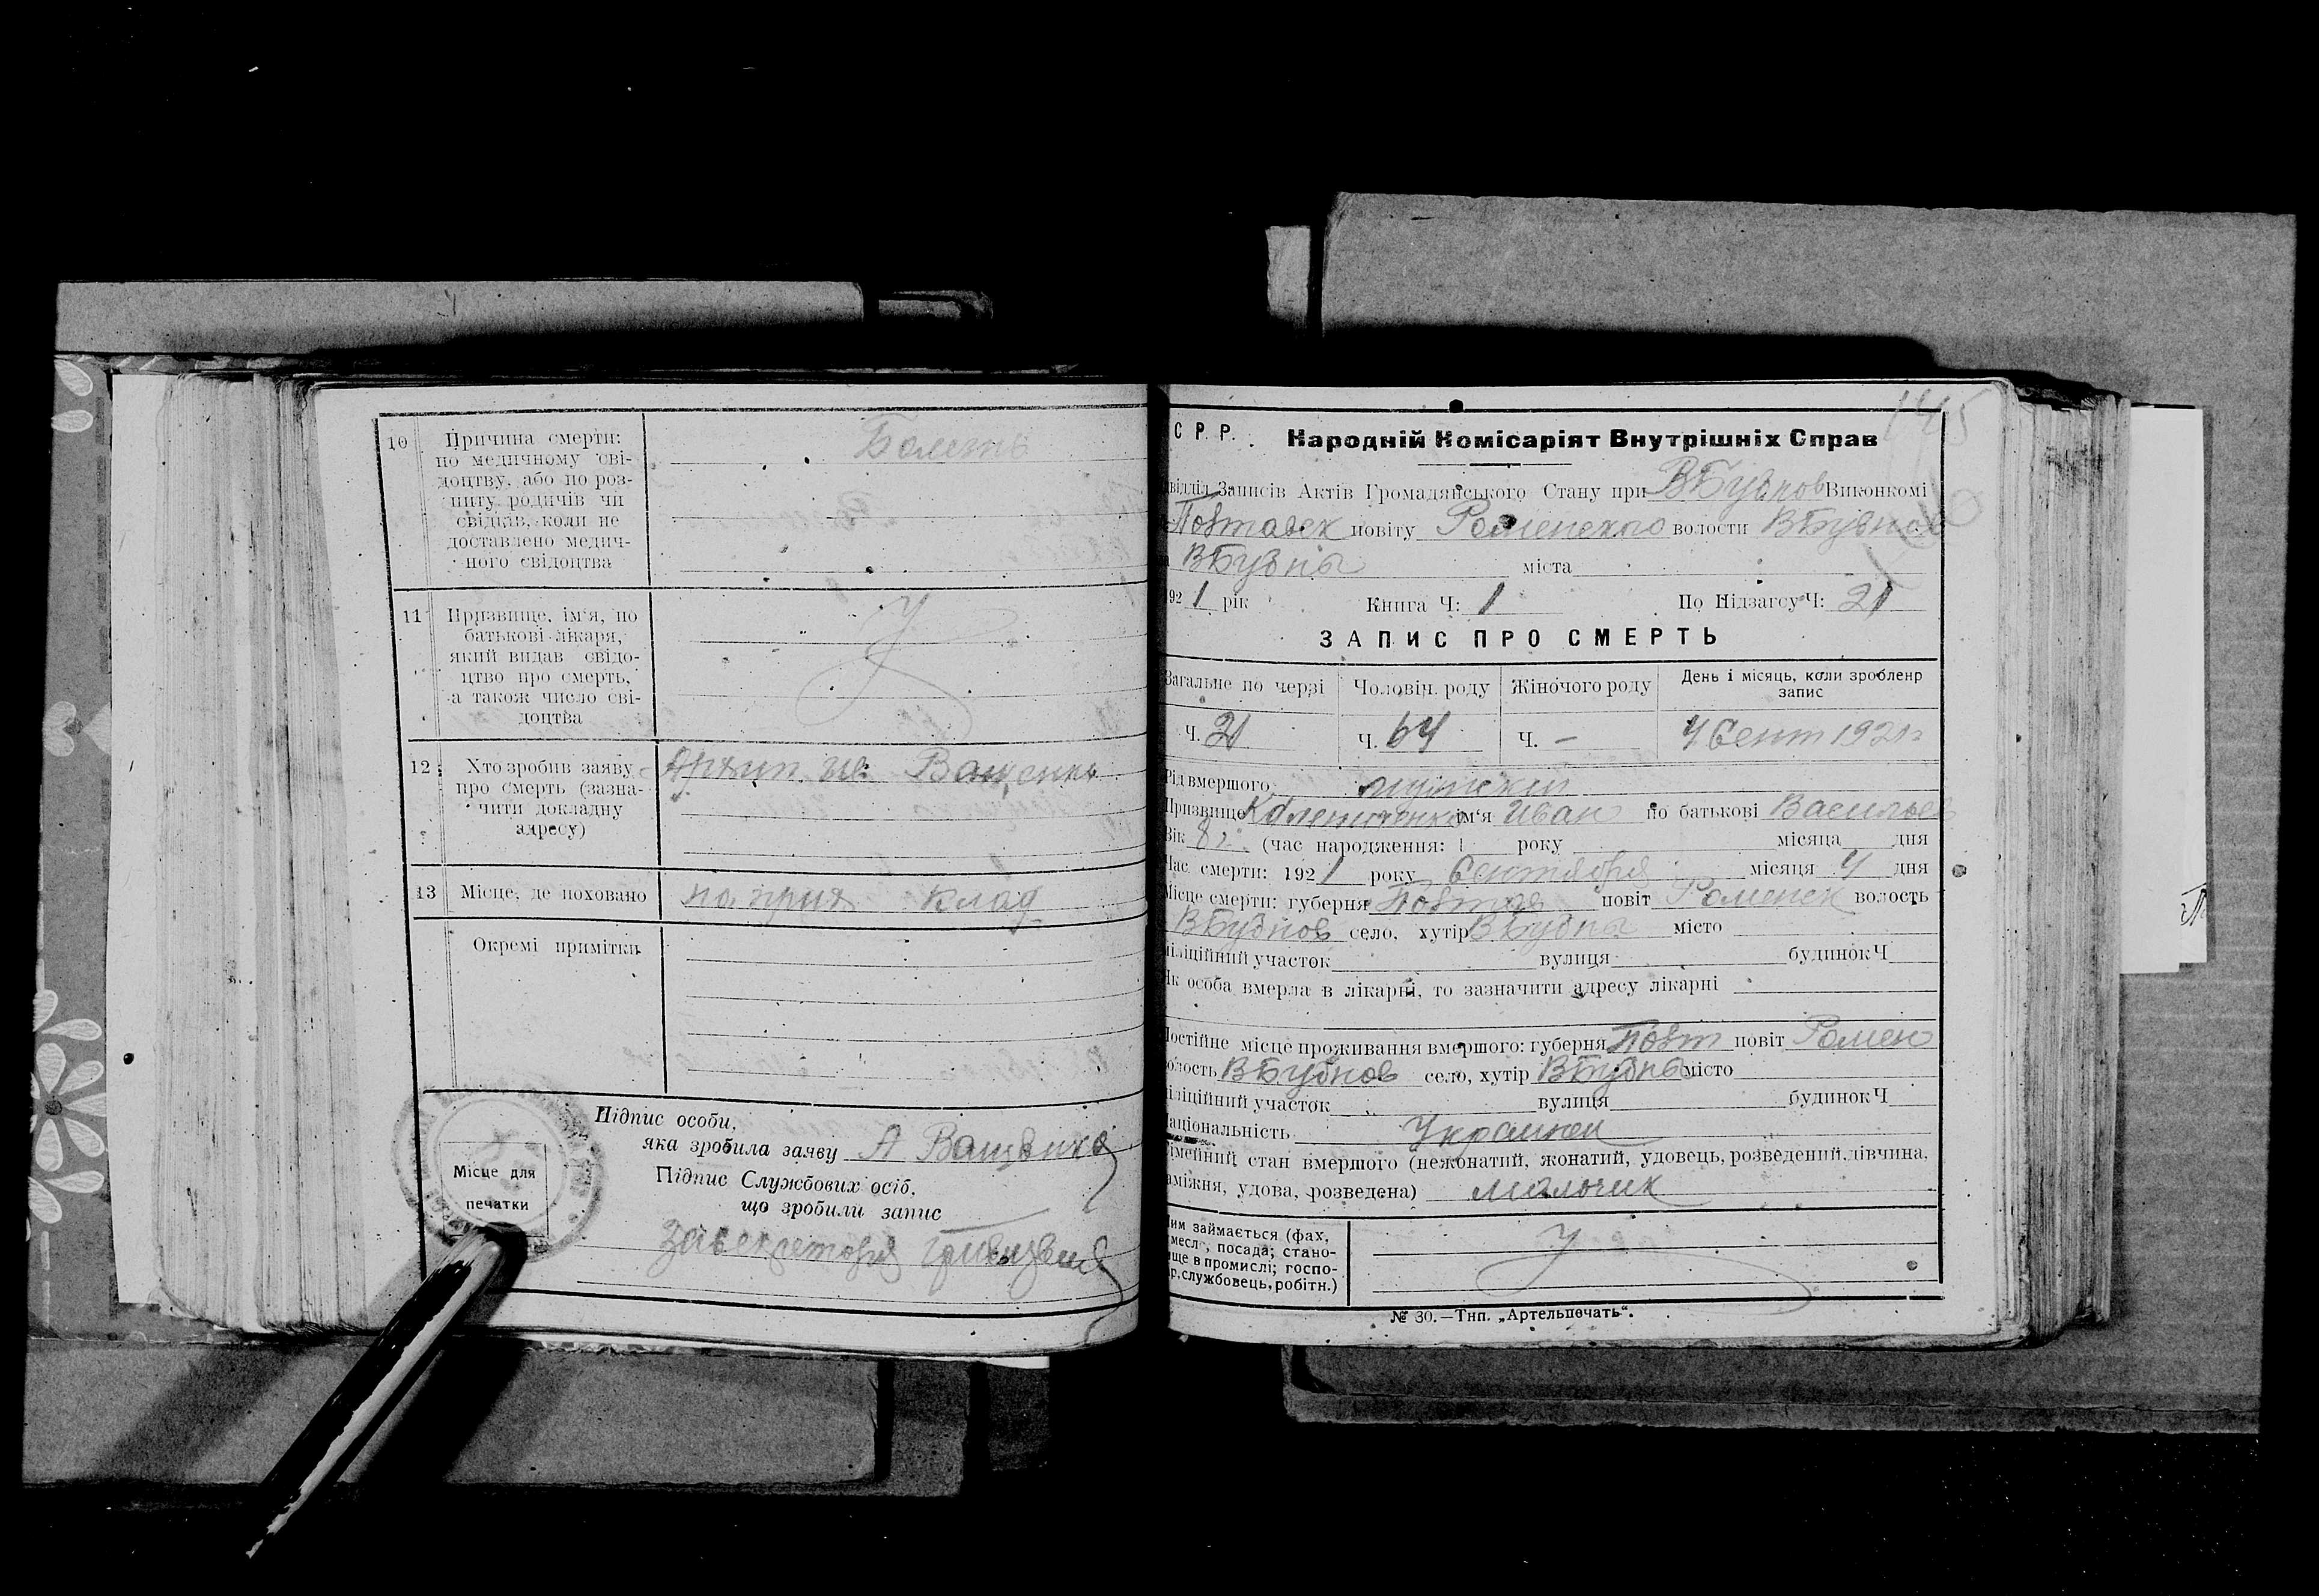 10 Причина смерти:
по медичному сві-
доцтву, або по роз-
питу родичів чи
свідків, коли не
доставлено медич-
ного свідоцтва
11 Призвище, ім'я, по
батькові лікаря,
який видав свідо-
цтво про смерть,
а також число сві-
доцтва
12 Хто зробив заяву
про смерть (зазна-
чити докладну
адресу)
Ващенко
13 Місце, де поховано клад
Окремі примітки
Підпис особи,
яка зробила заяву А Ващенко
Підпис Службових осіб,
що зробили запис
Місце для
печатки
145
С Р. Р. Народній Комісаріят Внутрішніх Справ
відділ Записів Актів Громадянського Стану при ВБубнов Виконкомі
Повтавск повіту Роменского волости ВБубнов
ВБубны міста
92 1 рік Книга Ч: 1 По Підзагсу Ч: 21
ЗАПИС ПРО СМЕРТЬ
Загальне по черзі Чоловіч. роду Жіночого роду День і місяць, коли зроблено
запис
Ч. 21 Ч. 64 Ч. — 4 Сент 1921г
Рід вмершого мужской
Призвище ім'я Иван по батькові Васильев
Вік 8 (час народження: 1 року місяца дня
Час смерти: 192 1 року Сентября місяця 4 дня
Місце смерти: губерня Повтав повіт Роменск волость
ВБубнов село, хутір ВБубны місто
міліційний участок вулиця будинок Ч
Як особа вмерла в лікарні, то зазначити адресу лікарні
Постійне місце проживання вмершого: губерня Повт повіт Ромен
волость ВБубнов село, хутір ВБубны місто
міліційний участок вулиця будинок Ч
Національність Украинец
Сімейний стан вмершого (нежонатий, жонатий, удовець, розведений, дівчина,
заміжня, удова, розведена) мальчик
Чим займається (фах,
ремесл., посада; стано-
вище в промислі; госпо-
дар, службовець, робітн.)
№ 30.—Тип. „Артельпечать“.